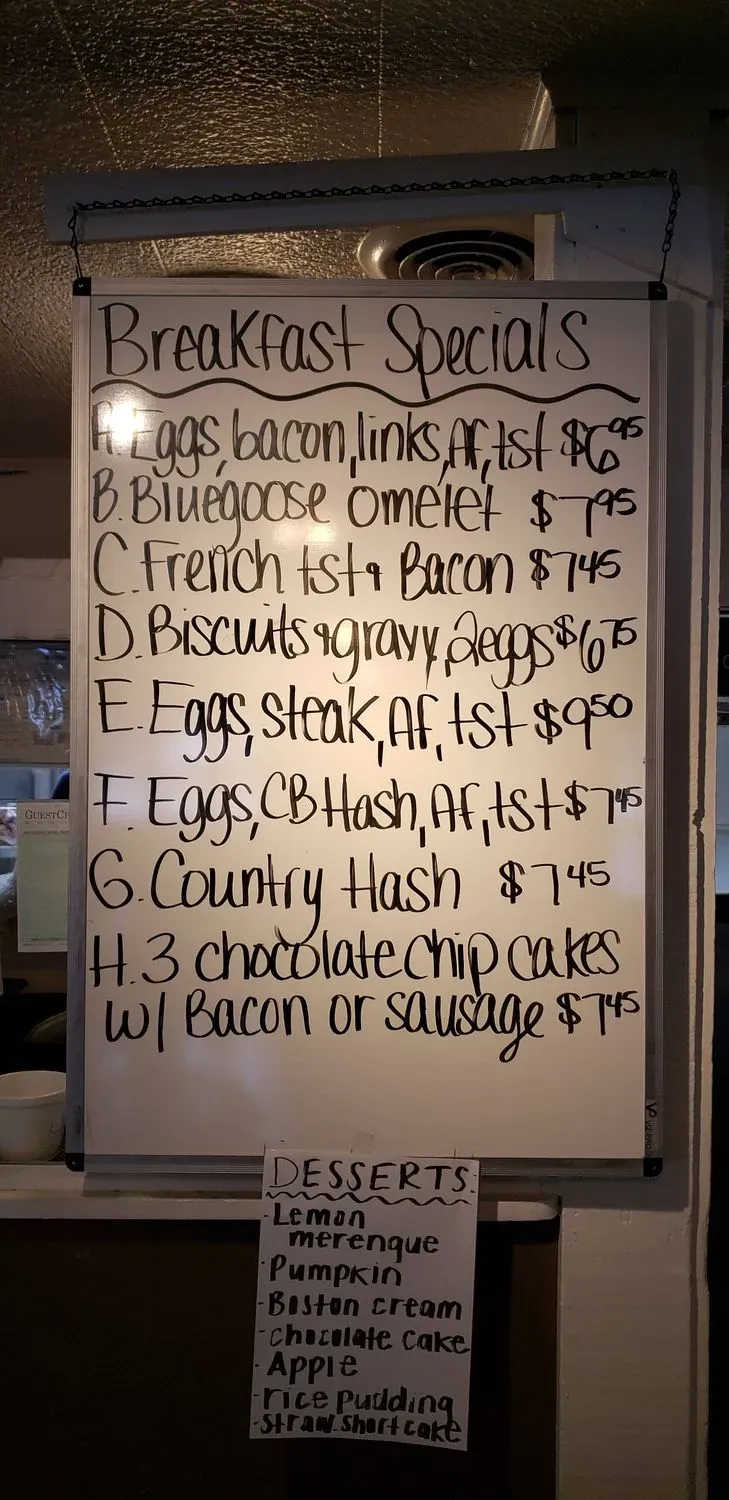 Breakfast Specials
A. Eggs, bacon, links, Af, tst $6.95
B. Bluegoose omelet $7.95
C. French tst & Bacon $7.45
D. Biscuits & gravy, 2 eggs $6.75
E. Eggs, steak, Af, tst $9.50
F. Eggs, CB Hash, Af, tst $7.45
G. Country Hash $7.45
H. 3 chocolate chip cakes
w/ Bacon or sausage $7.45
GUESTCH
VIZ-PRO
DESSERTS
- Lemon
merengue
- Pumpkin
- Boston cream
- chocolate cake
- Apple
- rice pudding
- straw. short cake